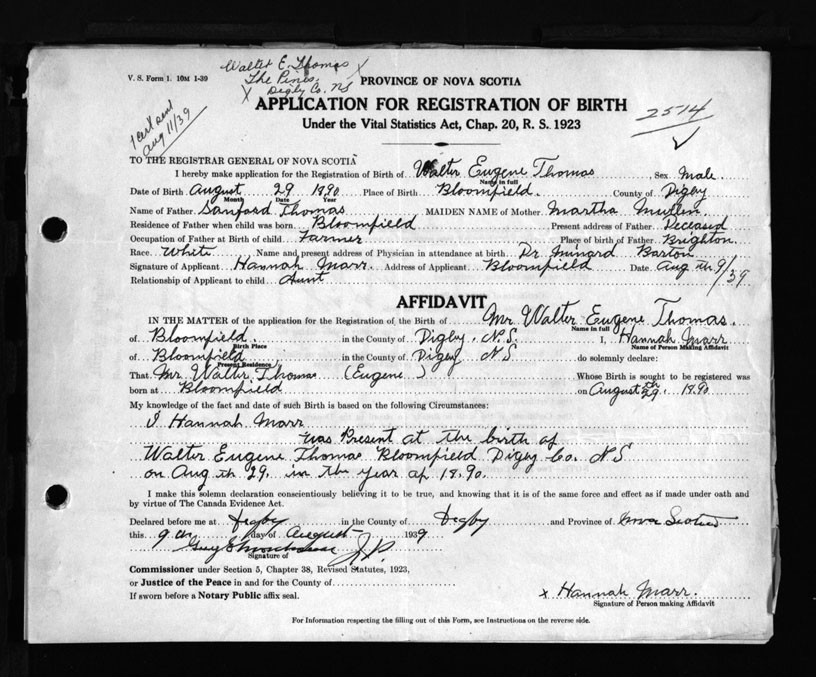 Walter E. Thomas
V. S. Form 1. 10M 1-39
The Pines, X
X Digby Co. NS
PROVINCE OF NOVA SCOTIA
APPLICATION FOR REGISTRATION OF BIRTH
2514
Under the Vital Statistics Act, Chap. 20, R. S. 1923
1 Cert sent
Aug 11/39
TO THE REGISTRAR GENERAL OF NOVA SCOTIA
I hereby make application for the Registration of Birth of Walter Eugene Thomas, Sex Male
Name in full
Date of Birth August 29 1890 Place of Birth Bloomfield. County of Digby
Month Date Year
Name of Father Sanford Thomas MAIDEN NAME of Mother Martha Mullen.
Residence of Father when child was born Bloomfield Present address of Father Deceased
Occupation of Father at Birth of child Farmer Place of birth of Father Brighton.
Race White Name and present address of Physician in attendance at birth Dr. Minard Barton
Signature of Applicant Hannah Marr. Address of Applicant Bloomfield Date Aug th 9/39
Relationship of Applicant to child Aunt
AFFIDAVIT
IN THE MATTER of the application for the Registration of the Birth of Mr Walter Eugene Thomas.
Name in full
of Bloomfield. in the County of Digby. N.S. I, Hannah Marr
Birth Place Name of Person Making Affidavit
of Bloomfield in the County of Digby N S do solemnly declare:
Present Residence
That Mr. Walter Thomas (Eugene) Whose Birth is sought to be registered was
born at Bloomfield on August th 29. 18.90
My knowledge of the fact and date of such Birth is based on the following Circumstances:
I Hannah Marr
was Present at the birth of
Walter Eugene Thomas Bloomfield Digby Co. NS
on Aug th 29. in the year of 18.90.
I make this solemn declaration conscientiously believing it to be true, and knowing that it is of the same force and effect as if made under oath and
by virtue of The Canada Evidence Act.
Declared before me at Digby in the County of Digby and Province of Nova Scotia
this 9 day of August 1939
J.P.
Signature of
Commissioner under Section 5, Chapter 38, Revised Statutes, 1923,
or Justice of the Peace in and for the County of
If sworn before a Notary Public affix seal.
x Hannah Marr.
Signature of Person making Affidavit
For Information respecting the filling out of this Form, see Instructions on the reverse side.